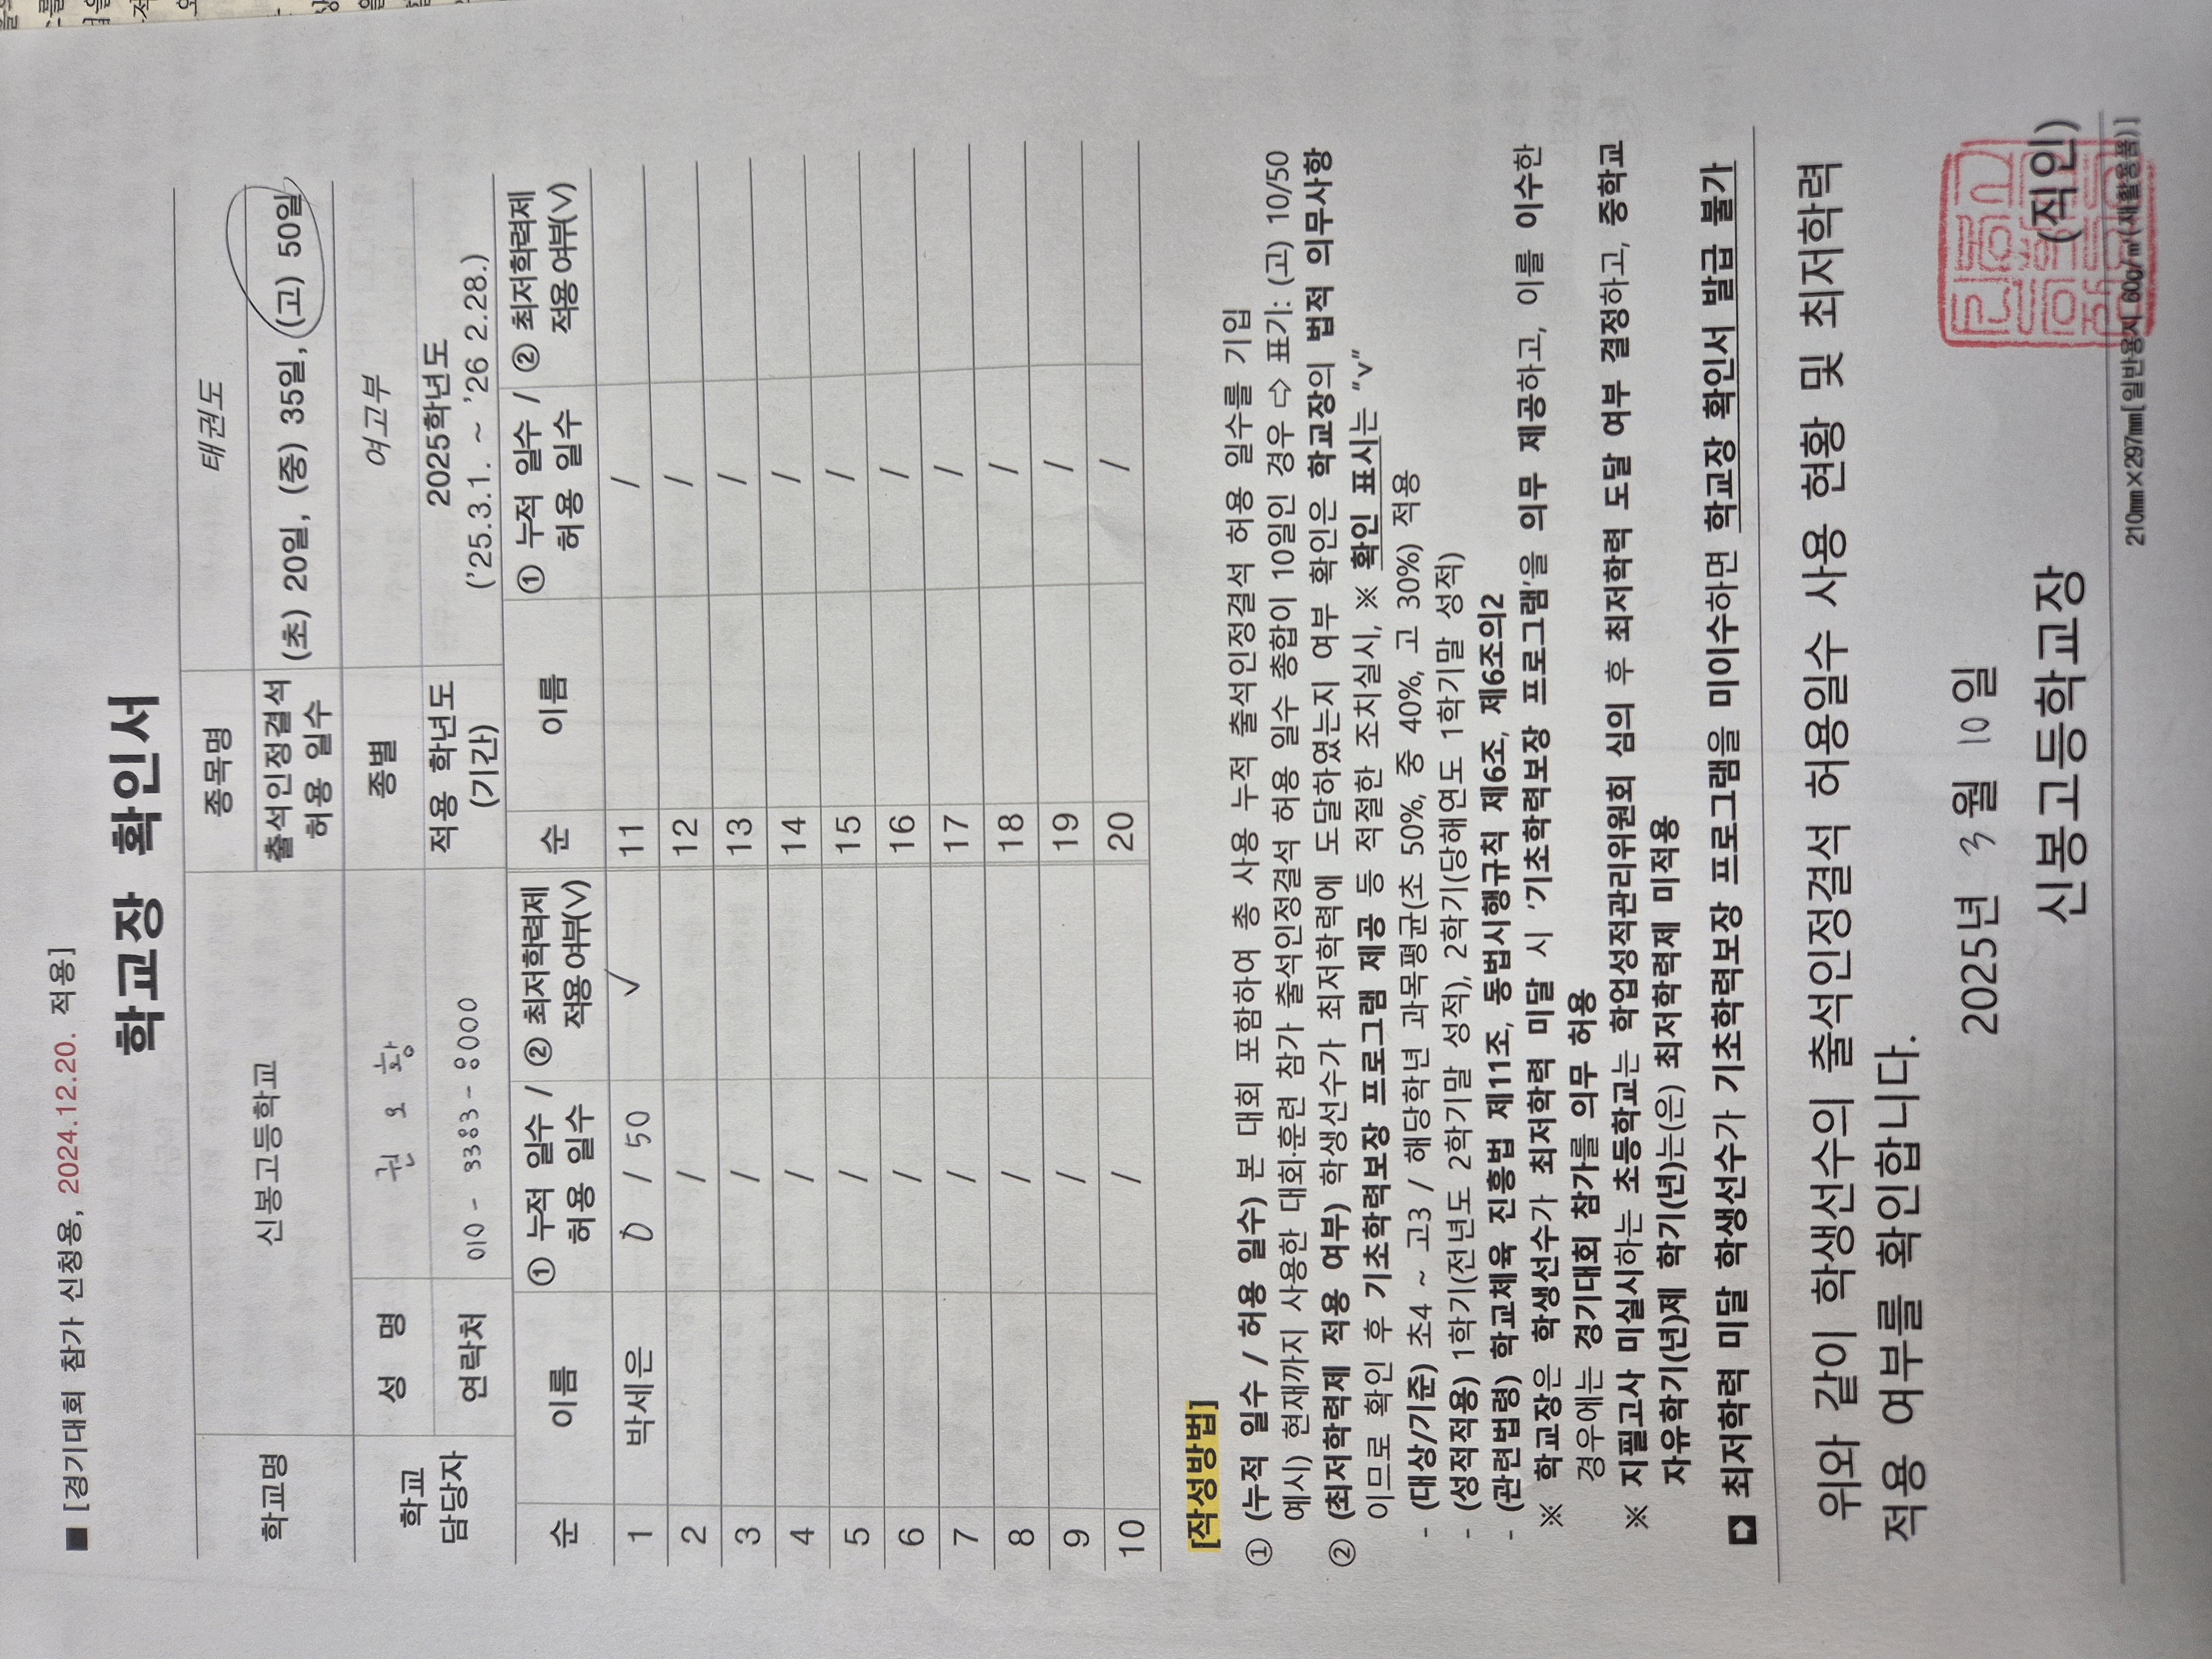 ■ [경기대회 참가 신청용, 2024.12.20. 적용]
학교장 확인서
학교명 신봉고등학교 종목명 태권도
출석인정결석 허용 일수 (초) 20일, (중) 35일, (고) 50일
학교 담당자 성 명 권 오 황 종별 여고부
연락처 010 - 3383 - 8000 적용 학년도 (기간) 2025학년도 ('25.3.1. ~ '26 2.28.)
순 이름 ① 누적 일수 / 허용 일수 ② 최저학력제 적용여부(∨) 순 이름 ① 누적 일수 / 허용 일수 ② 최저학력제 적용여부(∨)
1 박세은 0 / 50 ✓ 11 /
2 / 12 /
3 / 13 /
4 / 14 /
5 / 15 /
6 / 16 /
7 / 17 /
8 / 18 /
9 / 19 /
10 / 20 /
[작성방법]
① (누적 일수 / 허용 일수) 본 대회 포함하여 총 사용 누적 출석인정결석 허용 일수를 기입
예시) 현재까지 사용한 대회·훈련 참가 출석인정결석 허용 일수 총합이 10일인 경우 ⇨ 표기: (고) 10/50
② (최저학력제 적용 여부) 학생선수가 최저학력에 도달하였는지 여부 확인은 학교장의 법적 의무사항
이므로 확인 후 기초학력보장 프로그램 제공 등 적절한 조치실시, ※ 확인 표시는 "∨"
- (대상/기준) 초4 ~ 고3 / 해당학년 과목평균(초 50%, 중 40%, 고 30%) 적용
- (성적적용) 1학기(전년도 2학기말 성적), 2학기(당해연도 1학기말 성적)
- (관련법령) 학교체육 진흥법 제11조, 동법시행규칙 제6조, 제6조의2
※ 학교장은 학생선수가 최저학력 미달 시 '기초학력보장 프로그램'을 의무 제공하고, 이를 이수한
경우에는 경기대회 참가를 의무 허용
※ 지필고사 미실시하는 초등학교는 학업성적관리위원회 심의 후 최저학력 도달 여부 결정하고, 중학교
자유학기(년)제 학기(년)는(은) 최저학력제 미적용
➡ 최저학력 미달 학생선수가 기초학력보장 프로그램을 미이수하면 학교장 확인서 발급 불가
위와 같이 학생선수의 출석인정결석 허용일수 사용 현황 및 최저학력
적용 여부를 확인합니다.
2025년 3월 10일
신봉고등학교장 (직인)
210㎜×297㎜[일반용지 60g/㎡(재활용품)]